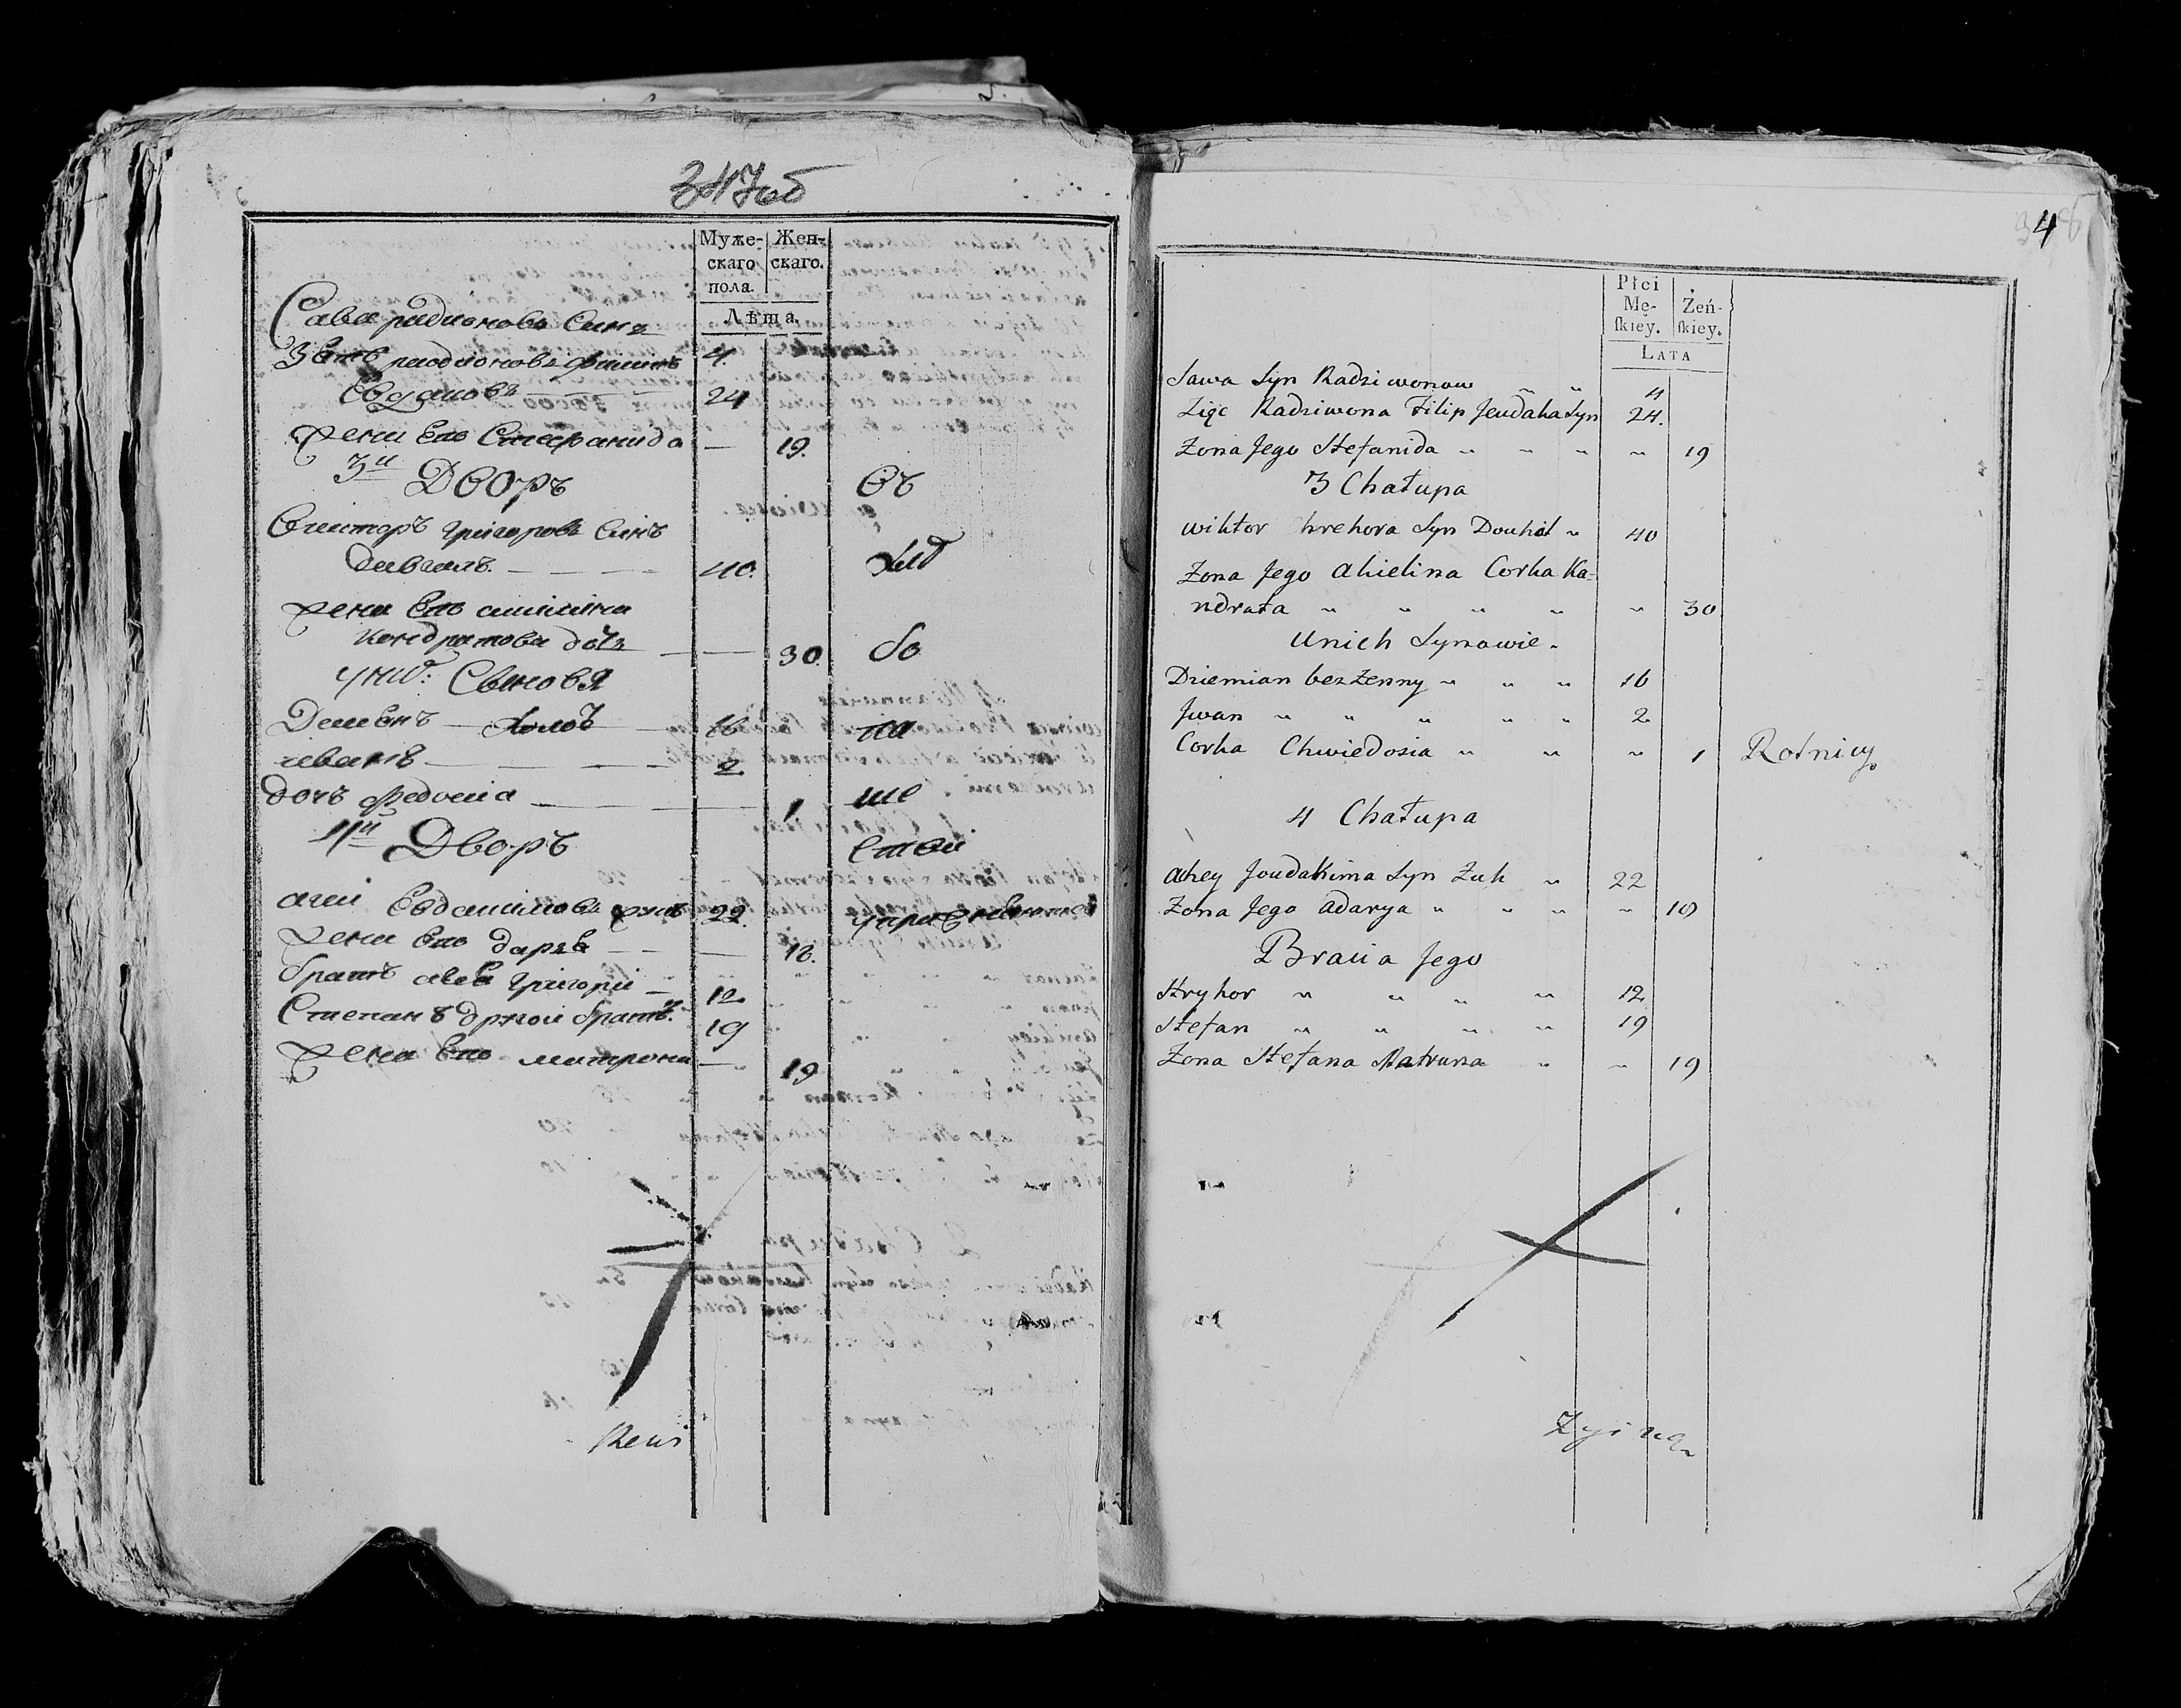 347об
Муже-
скаго
пола.
Жен-
скаго.
Лѣта.
Сава радионовъ Синъ 4.
Зеть раодионовъ филипъ
Евдаковъ 24
жена Ево Стефанида — 19.
3й Дворъ
Викторъ григоровъ Синъ
Давгалъ. 40.
жена Ево акилина
кондратова дочъ — 30.
У них: Сыновя
Демьянъ — холос 16
иванъ 2
дочъ Федосиа — 1
4й Дворъ
агей Евдакимовъ жукъ 22.
жена Ево даръя — 18.
братъ авея григорий 12
Степанъ другой братъ. 19
жена Ево матрона — 19
Въ
хлѣ
бо
па
ше
стве
упражняются
Rewi
34
Płci
Mę-
skiey.
Żeń-
skiey.
LATA
Sawa Syn Radziwonow " " 4
Zięc Radziwona Filip Jeudaka Syn 24.
Zona Jego Stefanida " " " " 19
3 Chałupa
Wiktor hrehora Syn Douhal " 40
Zona Jego Akielina Corka Ka-
ndrata " " " " " 30
Unich Synowie.
Dziemian bez Zenny " " " 16
Jwan " " " " " 2
Corka Chwiedosia " " " 1 Rolnicy
4 Chałupa
Ahey Joudakima Syn Zuk " 22
Zona Jego Adarya " " " " 19
Bracia Jego
Hryhor " " " " 12
Stefan " " " " 19
Zona Stefana Matruna " " 19